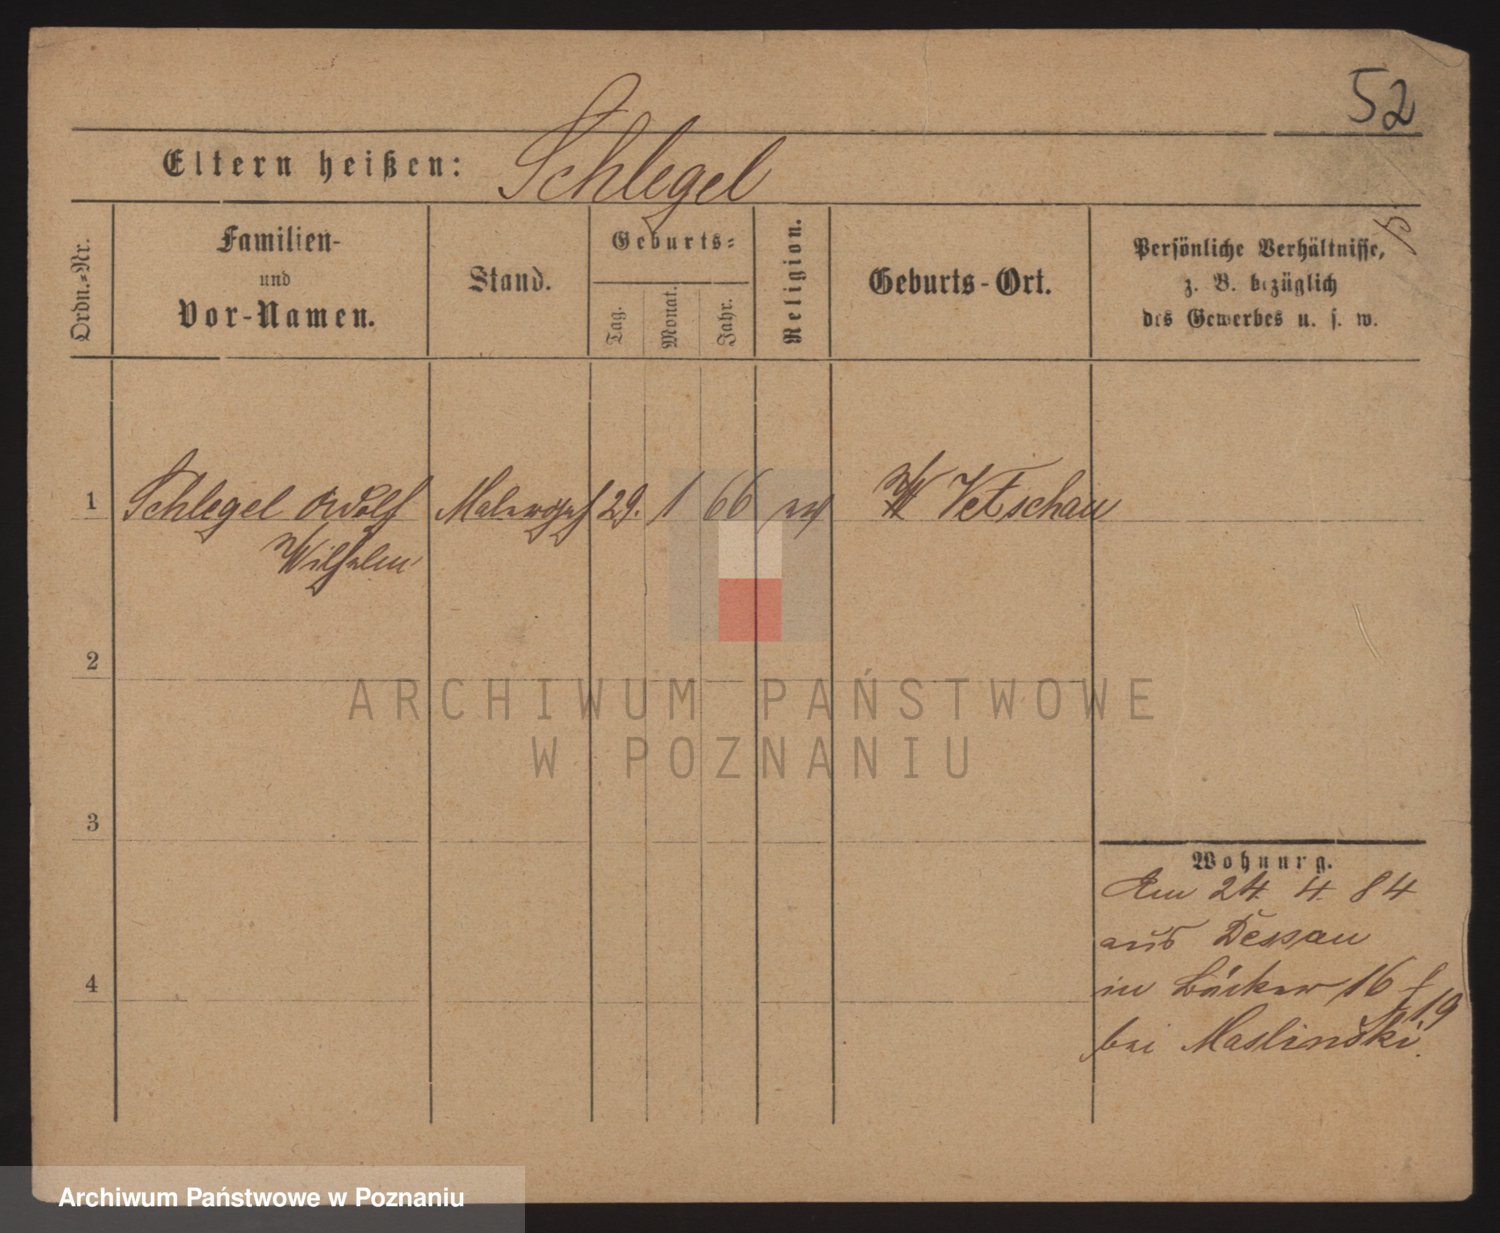 52
Eltern heißen: Schlegel
Ordn.-Nr.
Familien-
und
Vor-Namen.
Stand.
Geburts-
Tag.
Monat.
Jahr.
Religion.
Geburts-Ort.
Persönliche Verhältnisse,
z. B. bezüglich
des Gewerbes u. s. w.
1 Schlegel Adolf Malergeh 29. 1 66 ev Vetschau
Wilhelm
2
ARCHIWUM PAŃSTWOWE
W POZNANIU
3
Wohnung.
Am 24. 4. 84
aus Dessau
4
in Bäcker 16
19
bei Maslinski.
Archiwum Państwowe w Poznaniu